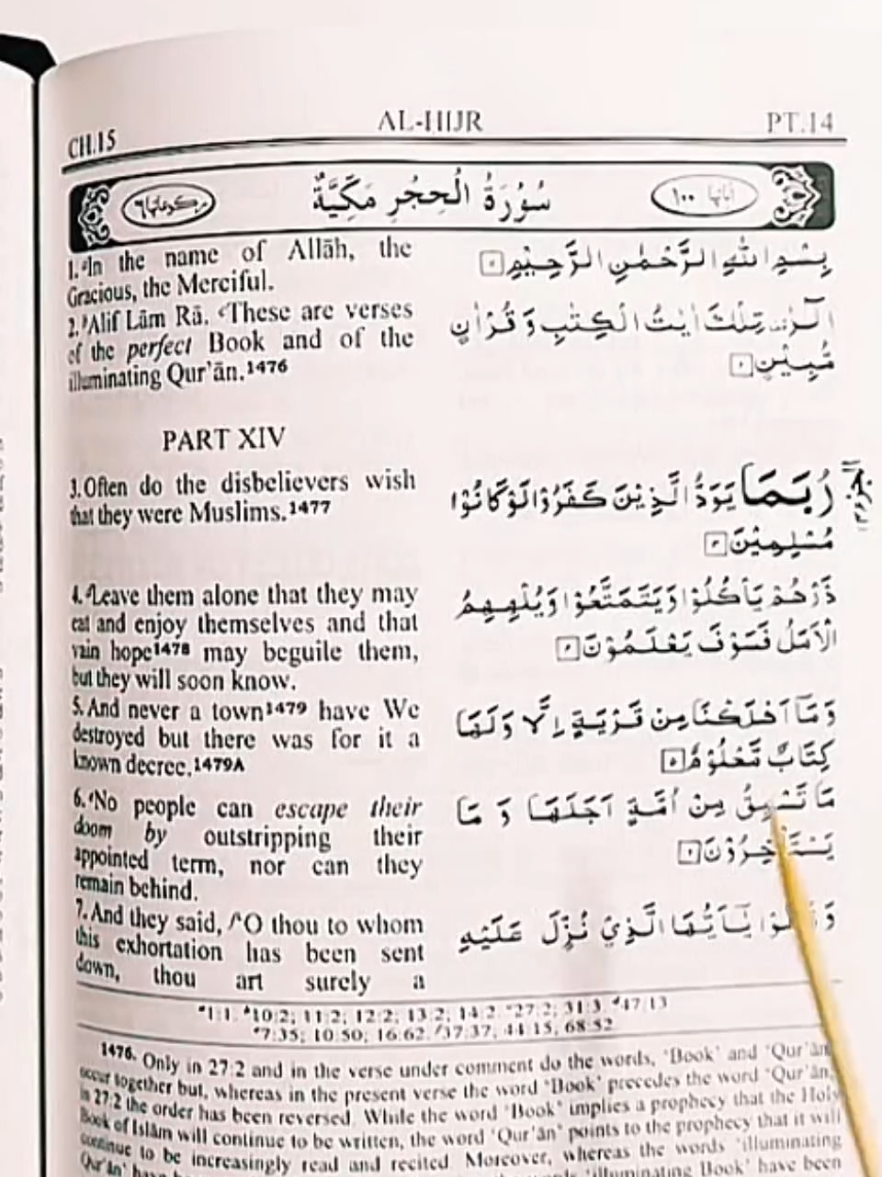 CH.15 AL-HIJR PT.14
سُوْرَةُ الْحِجْرِ مَكِّيَّةٌ
1. ᵃIn the name of Allāh, the
Gracious, the Merciful.
2. ᵇAlif Lām Rā. ᶜThese are verses
of the perfect Book and of the
illuminating Qur’ān.1476
PART XIV
3. Often do the disbelievers wish
that they were Muslims.1477
4. ᵈLeave them alone that they may
eat and enjoy themselves and that
vain hope1478 may beguile them,
but they will soon know.
5. And never a town1479 have We
destroyed but there was for it a
known decree.1479A
6. ᵉNo people can escape their
doom by outstripping their
appointed term, nor can they
remain behind.
7. And they said, ᶠ‘O thou to whom
this exhortation has been sent
down, thou art surely a
بِسْمِ اللّٰهِ الرَّحْمٰنِ الرَّحِيْمِ ۱
الٓرٰ تِلْكَ اٰيٰتُ الْكِتٰبِ وَ قُرْاٰنٍ
مُّبِيْنٍ ۲
رُبَمَا يَوَدُّ الَّذِيْنَ كَفَرُوْا لَوْ كَانُوْا
مُسْلِمِيْنَ ۳
ذَرْهُمْ يَاْكُلُوْا وَ يَتَمَتَّعُوْا وَ يُلْهِهِمُ
الْاَمَلُ فَسَوْفَ يَعْلَمُوْنَ ۴
وَ مَاۤ اَهْلَكْنَا مِنْ قَرْيَةٍ اِلَّا وَ لَهَا
كِتَابٌ مَّعْلُوْمٌ ۵
مَا تَسْبِقُ مِنْ اُمَّةٍ اَجَلَهَا وَ مَا
يَسْتَاْخِرُوْنَ ۶
يٰۤاَيُّهَا الَّذِيْ نُزِّلَ عَلَيْهِ
ᵃ1:1. ᵇ10:2; 11:2; 12:2; 13:2; 14:2. ᶜ27:2; 31:3. ᵈ47:13
ᵉ7:35; 10:50; 16:62. ᶠ37:37; 44:15; 68:52.
1476. Only in 27:2 and in the verse under comment do the words, ‘Book’ and ‘Qur’ān’
occur together but, whereas in the present verse the word ‘Book’ precedes the word ‘Qur’ān,’
in 27:2 the order has been reversed. While the word ‘Book’ implies a prophecy that the Holy
Book of Islām will continue to be written, the word ‘Qur’ān’ points to the prophecy that it will
continue to be increasingly read and recited. Moreover, whereas the words ‘illuminating
Qur’ān’ have ‘illuminating Book’ have been